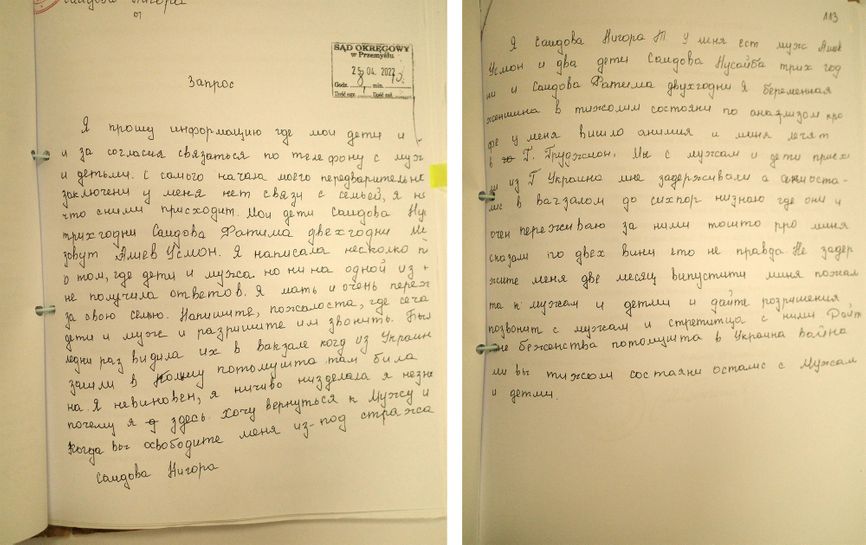 Саидова Нигора
SĄD OKRĘGOWY
w Przemyślu
04. 2022
Godz. min.
Запрос
Я прошу информацию где мои дети и
и за согласия связаться по телефону с муж
и детьми. С самого начала моего предварительно
заключени у меня нет связи с семьей, я не
что сними присходит. Мои дети Саидова Ну
трихгодни Саидова Фатима двехгодни
зовут Ашев Усмон. Я написала несколко п
о том, где дети и мужа но ни на одной из
не получила ответов. Я мать и очень переж
за свою семью. Напишите, пожалоста, где сеча
дети и муж и разришите им звонить. Был
ледни раз видила их в вакзале когд из Украин
зашли в Полшу потомушта там била
на. Я невиновен, я ничиво низделала я незн
почему я здесь. Хочу вернуться к Мужу и
Когда вы освободите меня из-под стража
Саидова Нигора
113
Я Саидова Нигора Т. У меня ест муж Ашев
Усмон и два дети Саидова Нусайба трих год
ни и Саидова Фатима двухгодни Я беременная
женшина в тижолим состояни по анализом кро
фе у меня вишло анимия и миня лечят
в Г. Груджионз. Мы с мужам и дети приех
ли из Г Украина мне задерживали а они оста-
лис в вагзалом до сихпор низнаю где они и
очен переживаю за ними тошто про миня
сказали по двех вини што не правда. Не задер
жите меня две месяц випустити миня пожал
та к мужам и детми и дайте розришения
позвонит с мужам и стретитца с ними Дайт
не беженства потомушта в Украина вайна
ли вы тижолом состаяни осталис с Мужам
и детми.